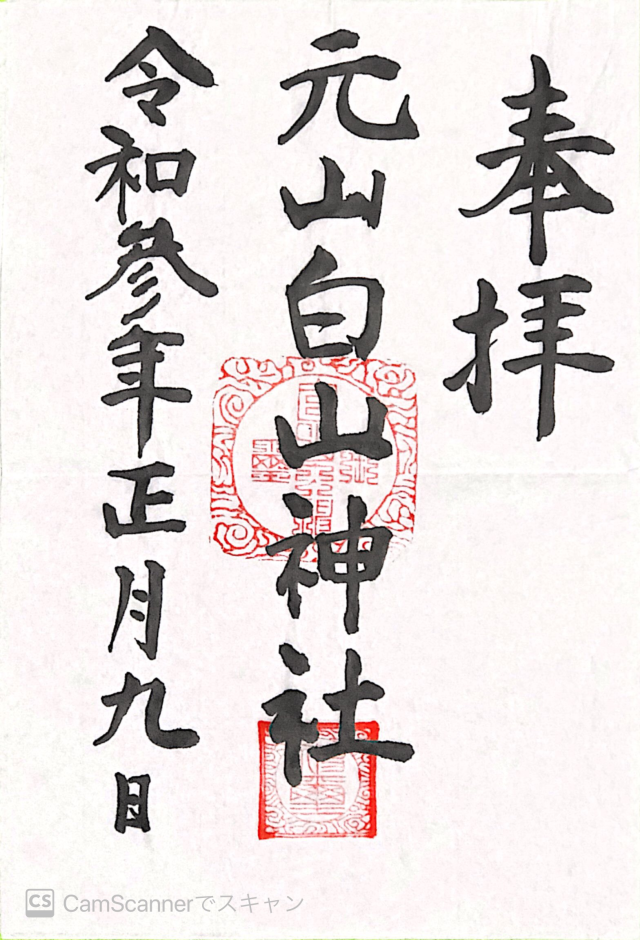 奉拝
元山白山神社
令和参年正月九日
CS CamScannerでスキャン